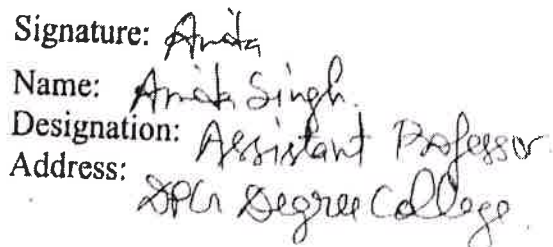 Signature: Anita
Name: Anita Singh.
Designation: Assistant Professor
Address:
DPG Degree College.